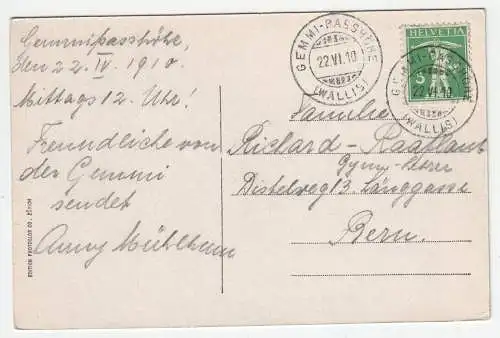 Gemmipasshöhe,
den 22. IV. 1910.
Mittags 12. Uhr!
Freundliche von
der Gemmi
sendet
Anny Mühlheim
EDITION PHOTOGLOB CO., ZÜRICH
GEMMI-PASSHÖHE
22.VI.10
(WALLIS)
HELVETIA
5
GEMMI-PASSHÖHE
22.VI.10
(WALLIS)
Familie
Richard-Raaflaub
Gymn.-Lehrer
Distelweg 13. Länggasse
Bern.